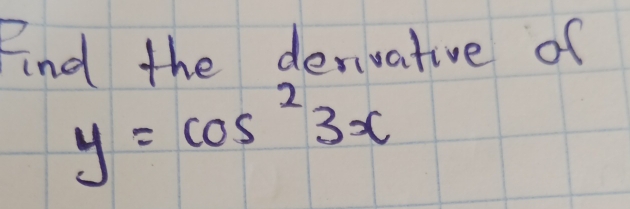 Find the derivative of
y = cos² 3x